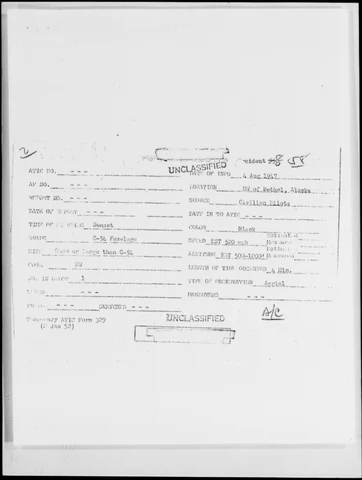 2 Incident 58
UNCLASSIFIED
ATIC NO. - - - DATE OF INFO 4 Aug 1947
AF NO. - - - LOCATION NW of Bethel, Alaska
REPORT NO. - - - SOURCE Civilian Pilots
DATE OF REPORT - - - DATE IN TO ATIC - - -
TIME OF SIGHTING Sunset COLOR Black
SHAPE C-54 Fuselage SPEED EST 520 mph
SIZE Same or Larger than C-54 ALTITUDE EST 500-1000'
COURSE NW LENGTH OF TIME OBSERVED 4 Min.
NO. IN GROUP 1 TYPE OF OBSERVATION Aerial
SOUND - - - MANEUVERS - - -
PHOTOS - - - SKETCHES - - - A/C
Temporary ATIC Form 329 UNCLASSIFIED
(2 Jan 52)